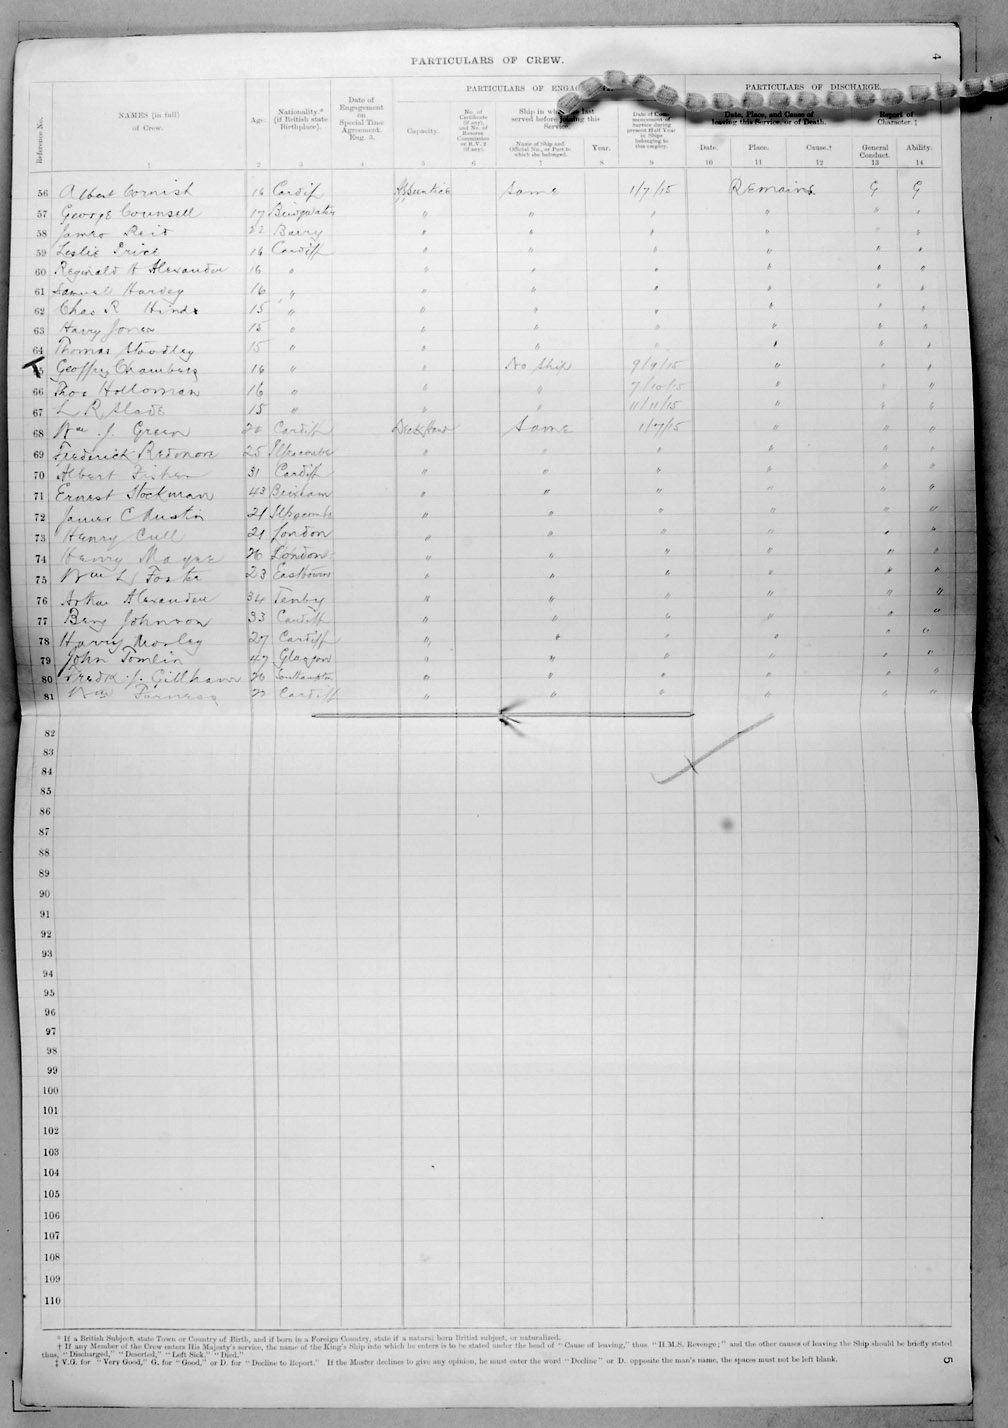 4
PARTICULARS OF CREW.
Reference No.
NAMES (in full) of Crew.
Age.
Nationality.* (if British state Birthplace).
Date of Engagement on Special Time Agreement, Eng. 3.
PARTICULARS OF ENGAG
Capacity.
No. of Certificate (if any), and No. of Reserve Commission or R.V. 2 (if any).
Ship in wh last served before joining this Service.
Name of Ship and Official No., or Port to which she belonged.
Year.
Date of Com mencement of Service during present Half Year in Ships belonging to this employ.
PARTICULARS OF DISCHARGE.
Date, Place, and Cause of leaving this Service, or of Death.
Date.
Place.
Cause.†
Report of Character. ‡
General Conduct.
Ability.
1 2 3 4 5 6 7 8 9 10 11 12 13 14
56 Albert Cornish 16 Cardiff Apprentice Same 1/7/15 Remains G G
57 George Counsell 17 Bridgwater " " " " " "
58 James Reid 22 Barry " " " " " "
59 Leslie Price 16 Cardiff " " " " " "
60 Reginald H Alexander 16 " " " " " " "
61 Samuel Harvey 16 " " " " " " "
62 Chas R Hinds 15 " " " " " " "
63 Harry Jones 15 " " " " " " "
64 Thomas Stoodley 15 " " " " " " "
65 Geoffrey Chambers 16 " " No Ship 9/9/15 " " "
66 Thos Holloman 16 " " " 7/10/15 " " "
67 L R Slade 15 " " " 11/11/15 " " "
68 Wm J. Green 20 Cardiff Deck Hand Same 1/7/15 " " "
69 Frederick Redmore 25 Ilfracombe " " " " " "
70 Albert Fisher 31 Cardiff " " " " " "
71 Ernest Stockman 43 Brixham " " " " " "
72 James C Austin 21 Ilfracombe " " " " " "
73 Henry Cull 21 London " " " " " "
74 Henry Mayne 26 London " " " " " "
75 Wm L Foster 23 Eastbourne " " " " " "
76 Arthur Alexander 34 Tenby " " " " " "
77 Benj Johnson 33 Cardiff " " " " " "
78 Harry Morley 27 Cardiff " " " " " "
79 John Tomlin 47 Glasgow " " " " " "
80 Fredk J. Gillham 20 Southampton " " " " " "
81 Wm Furness 22 Cardiff " " " " " "
82
83
84
85
86
87
88
89
90
91
92
93
94
95
96
97
98
99
100
101
102
103
104
105
106
107
108
109
110
* If a British Subject, state Town or Country of Birth, and if born in a Foreign Country, state if a natural born British subject, or naturalized.
† If any Member of the Crew enters His Majesty's service, the name of the King's Ship into which he enters is to be stated under the head of "Cause of leaving," thus. "H.M.S. Revenge;" and the other causes of leaving the Ship should be briefly stated
thus, "Discharged," "Deserted," "Left Sick," "Died."
‡ V.G. for "Very Good," G. for "Good," or D. for "Decline to Report." If the Master declines to give any opinion, he must enter the word "Decline" or D. opposite the man's name, the spaces must not be left blank.
5